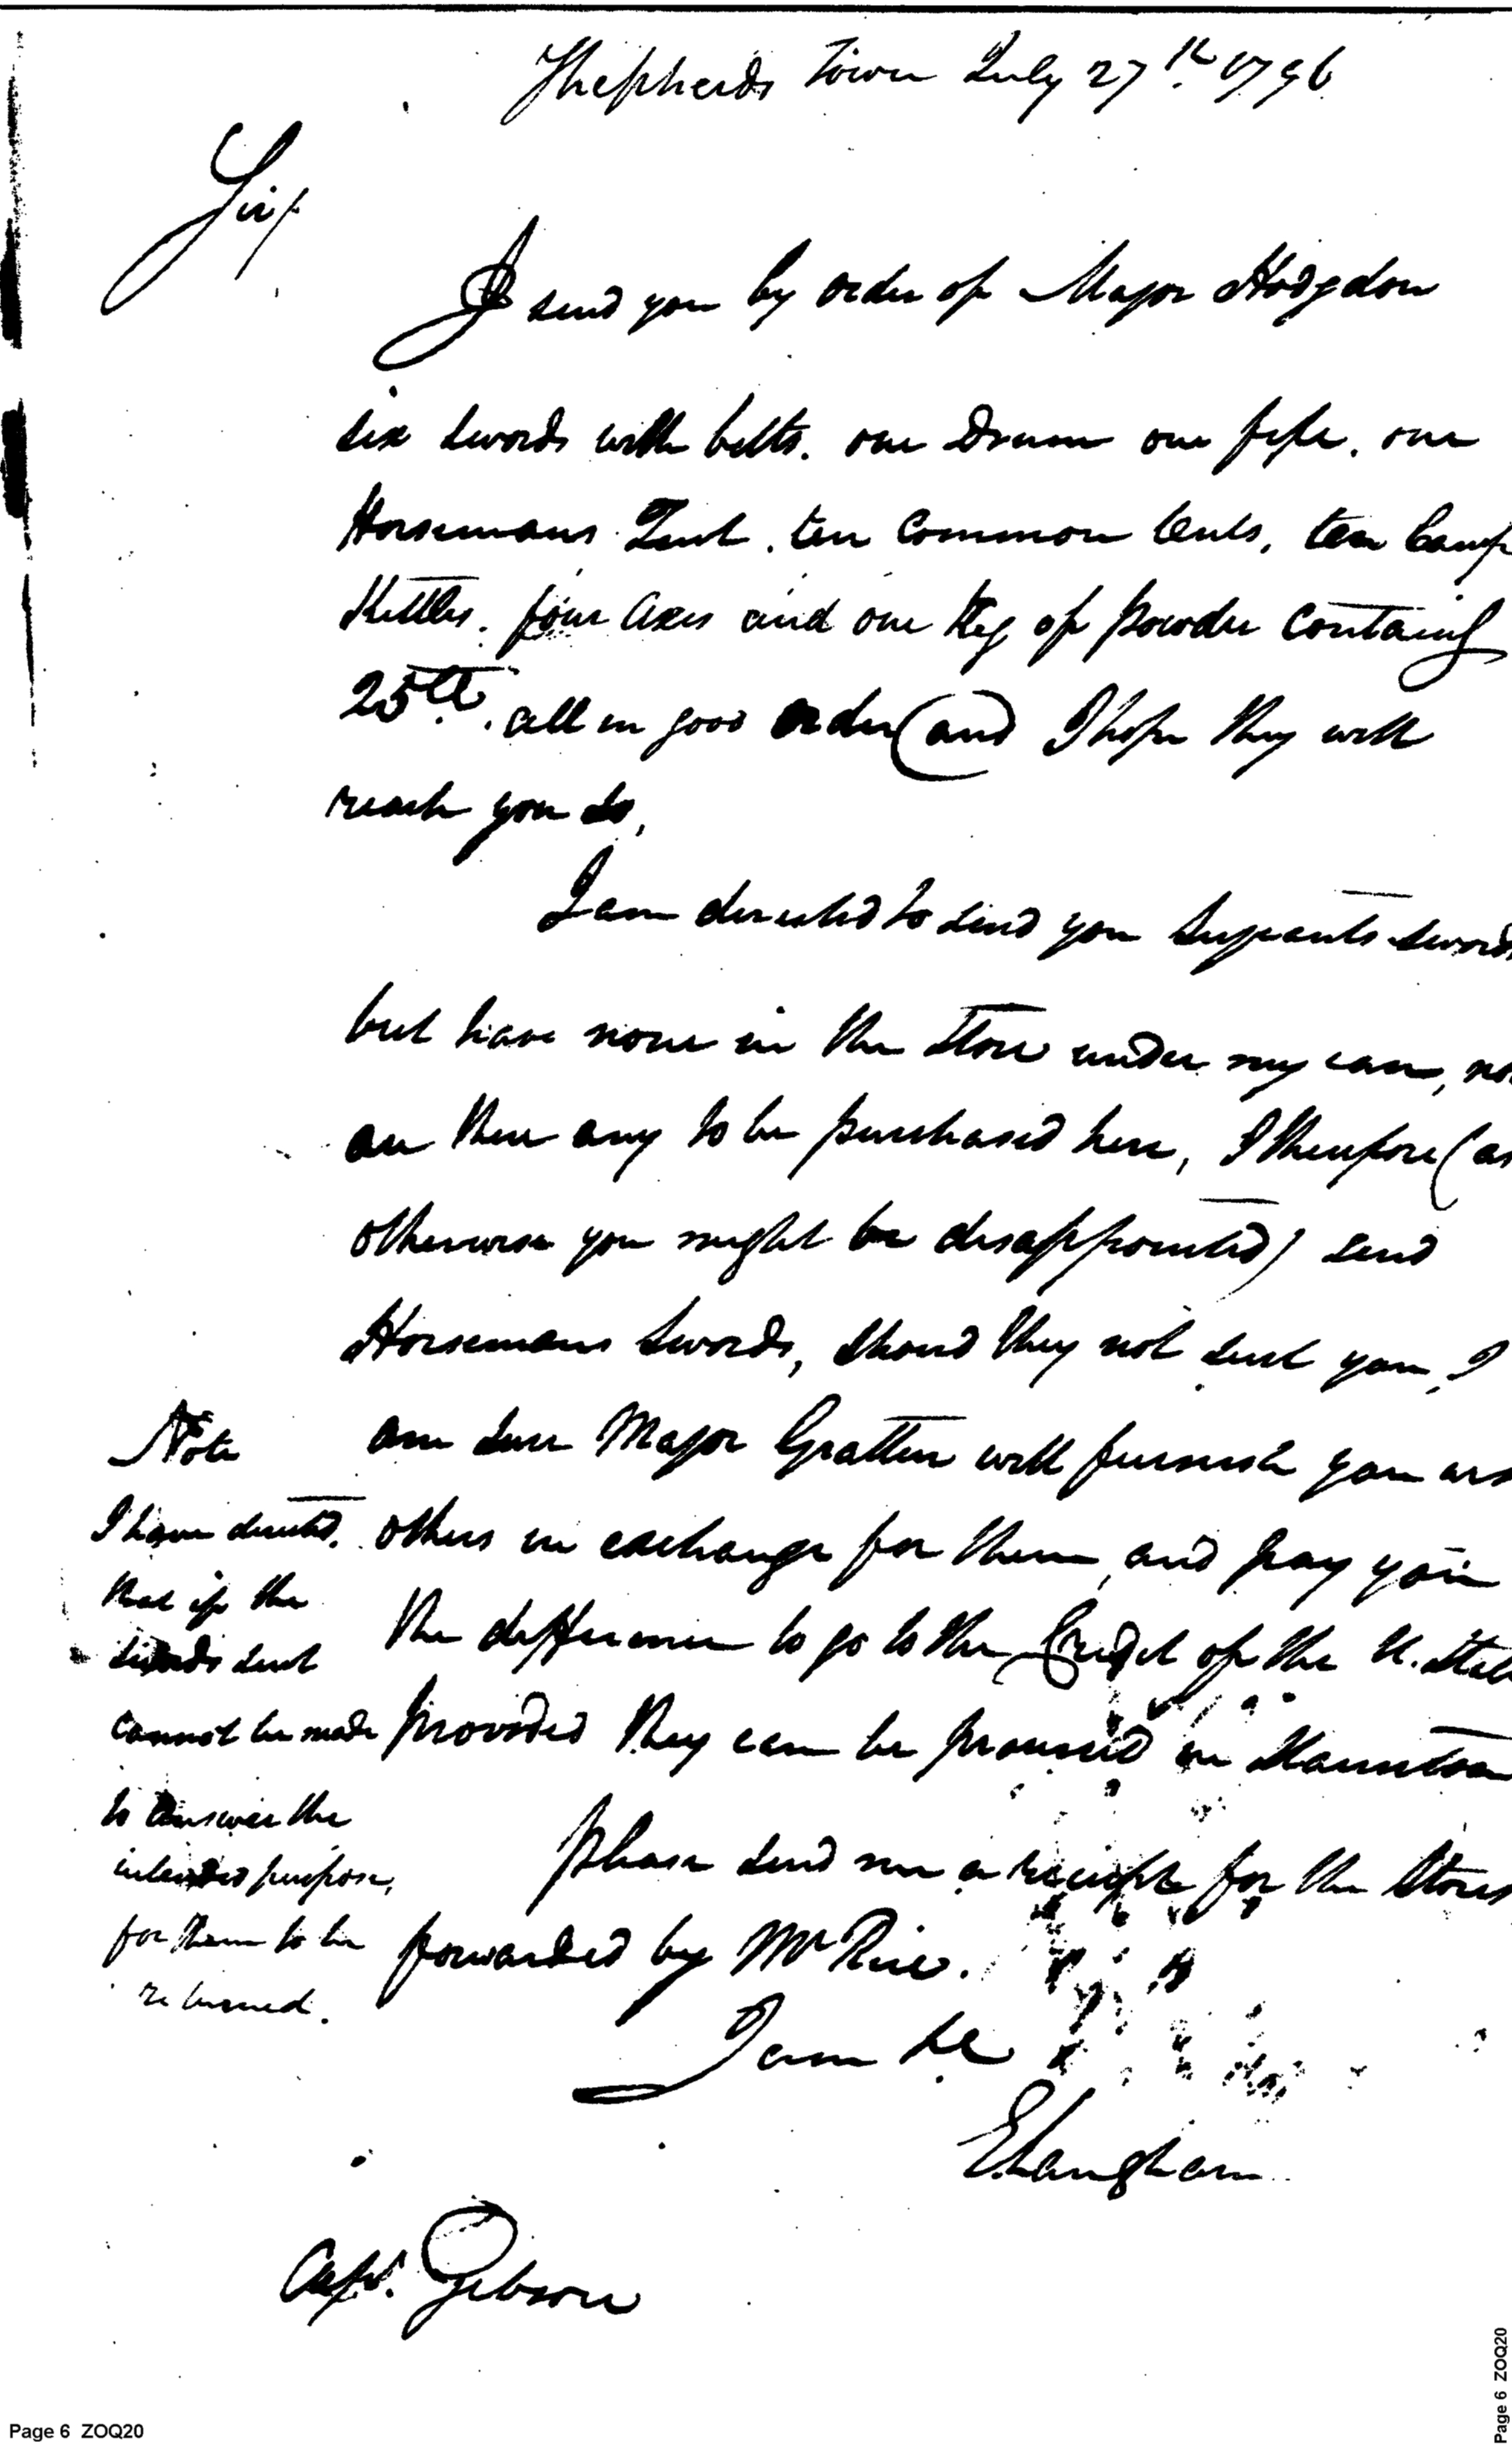 Shepherds Town July 27th 1796
Sir/
I send you by order of Major Hodgdon
six swords with belts. one Drum one fife. one
Horsemans Tent. ten Common tents, ten Camp
Kettles. four axes and one Keg of powder Containg
25lb. all in good order (and) I hope they will
reach you so,
I am directed to send you Serjeants swords
but have none in the Store under my care, no
are there any to be purchased here, I therefore (as
otherwise you might be disappointed) send
Horsemans swords, shoud they not suit you, I
am sure Major Gratten will furnish you
others in exchange for them, and pay you
the difference to go to the Credit of the U. State
provided they can be procured in Stannton
please send me a receipt for the Stores
forwarded by Mr Rice.
I am &c
E Langham
Capt. Gibson
Note
I have directed.
that if the
swords sent
cannot be made
to answer the
intended purpose,
for them to be
returned.
Page 6 ZOQ20
Page 6 ZOQ20